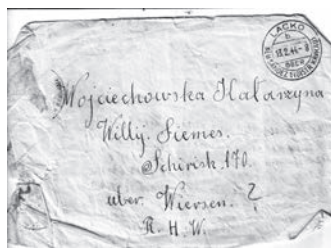 LACKO
b
13.2.44-8
Wojciechowska Katarzyna
Willy. Siemes.
Schirisk.170.
uber. Wiersen. ?
R. H. W.